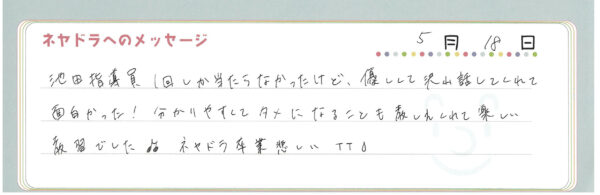 ネヤドラへのメッセージ 5月18日
池田指導員 1回しか当たらなかったけど、優しくて沢山話してくれて
面白かった! 分かりやすくてタメになることも教えてくれて楽しい
教習でした♫ ネヤドラ卒業悲しい TT